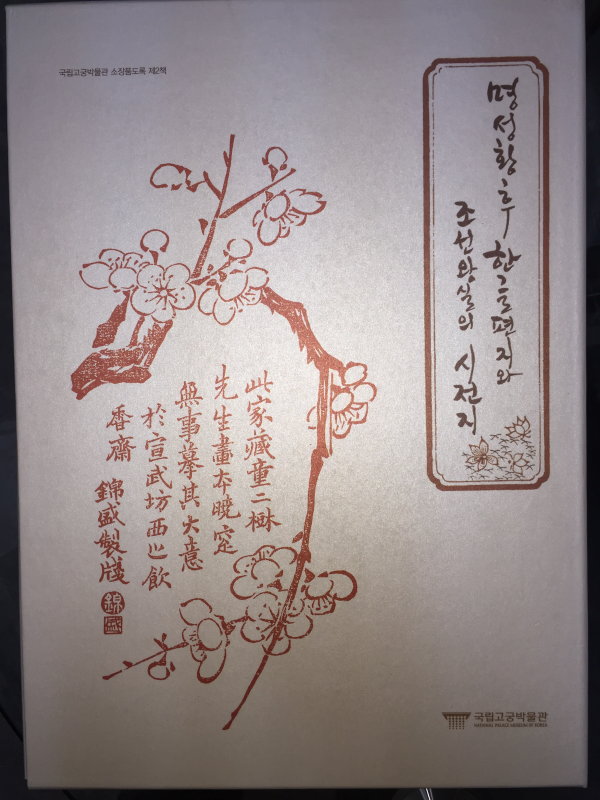 국립고궁박물관 소장품도록 제2책
명성황후 한글편지와
조선왕실의 시전지
此家藏童二樹
先生畫本曉窓
無事摹其大意
於宣武坊西之飲
香齋
錦盛製牋
錦盛
국립고궁박물관
NATIONAL PALACE MUSEUM OF KOREA